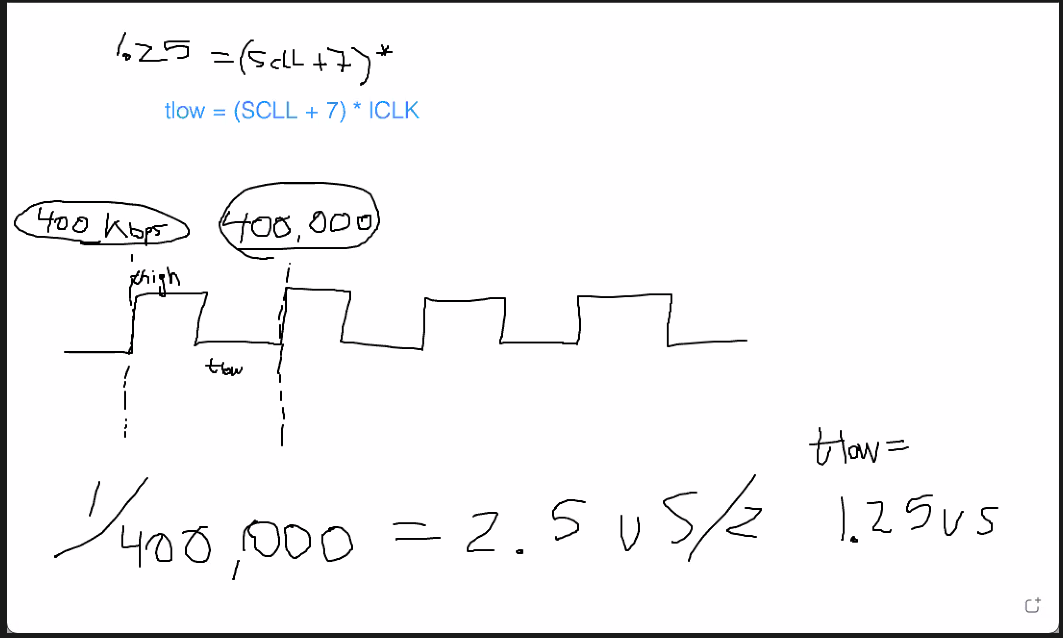 1.25 = (SCLL + 7) *
tlow = (SCLL + 7) * ICLK
400 Kbps 400,000
thigh
tlow
tlow =
1/400,000 = 2.5 us/2 1.25us